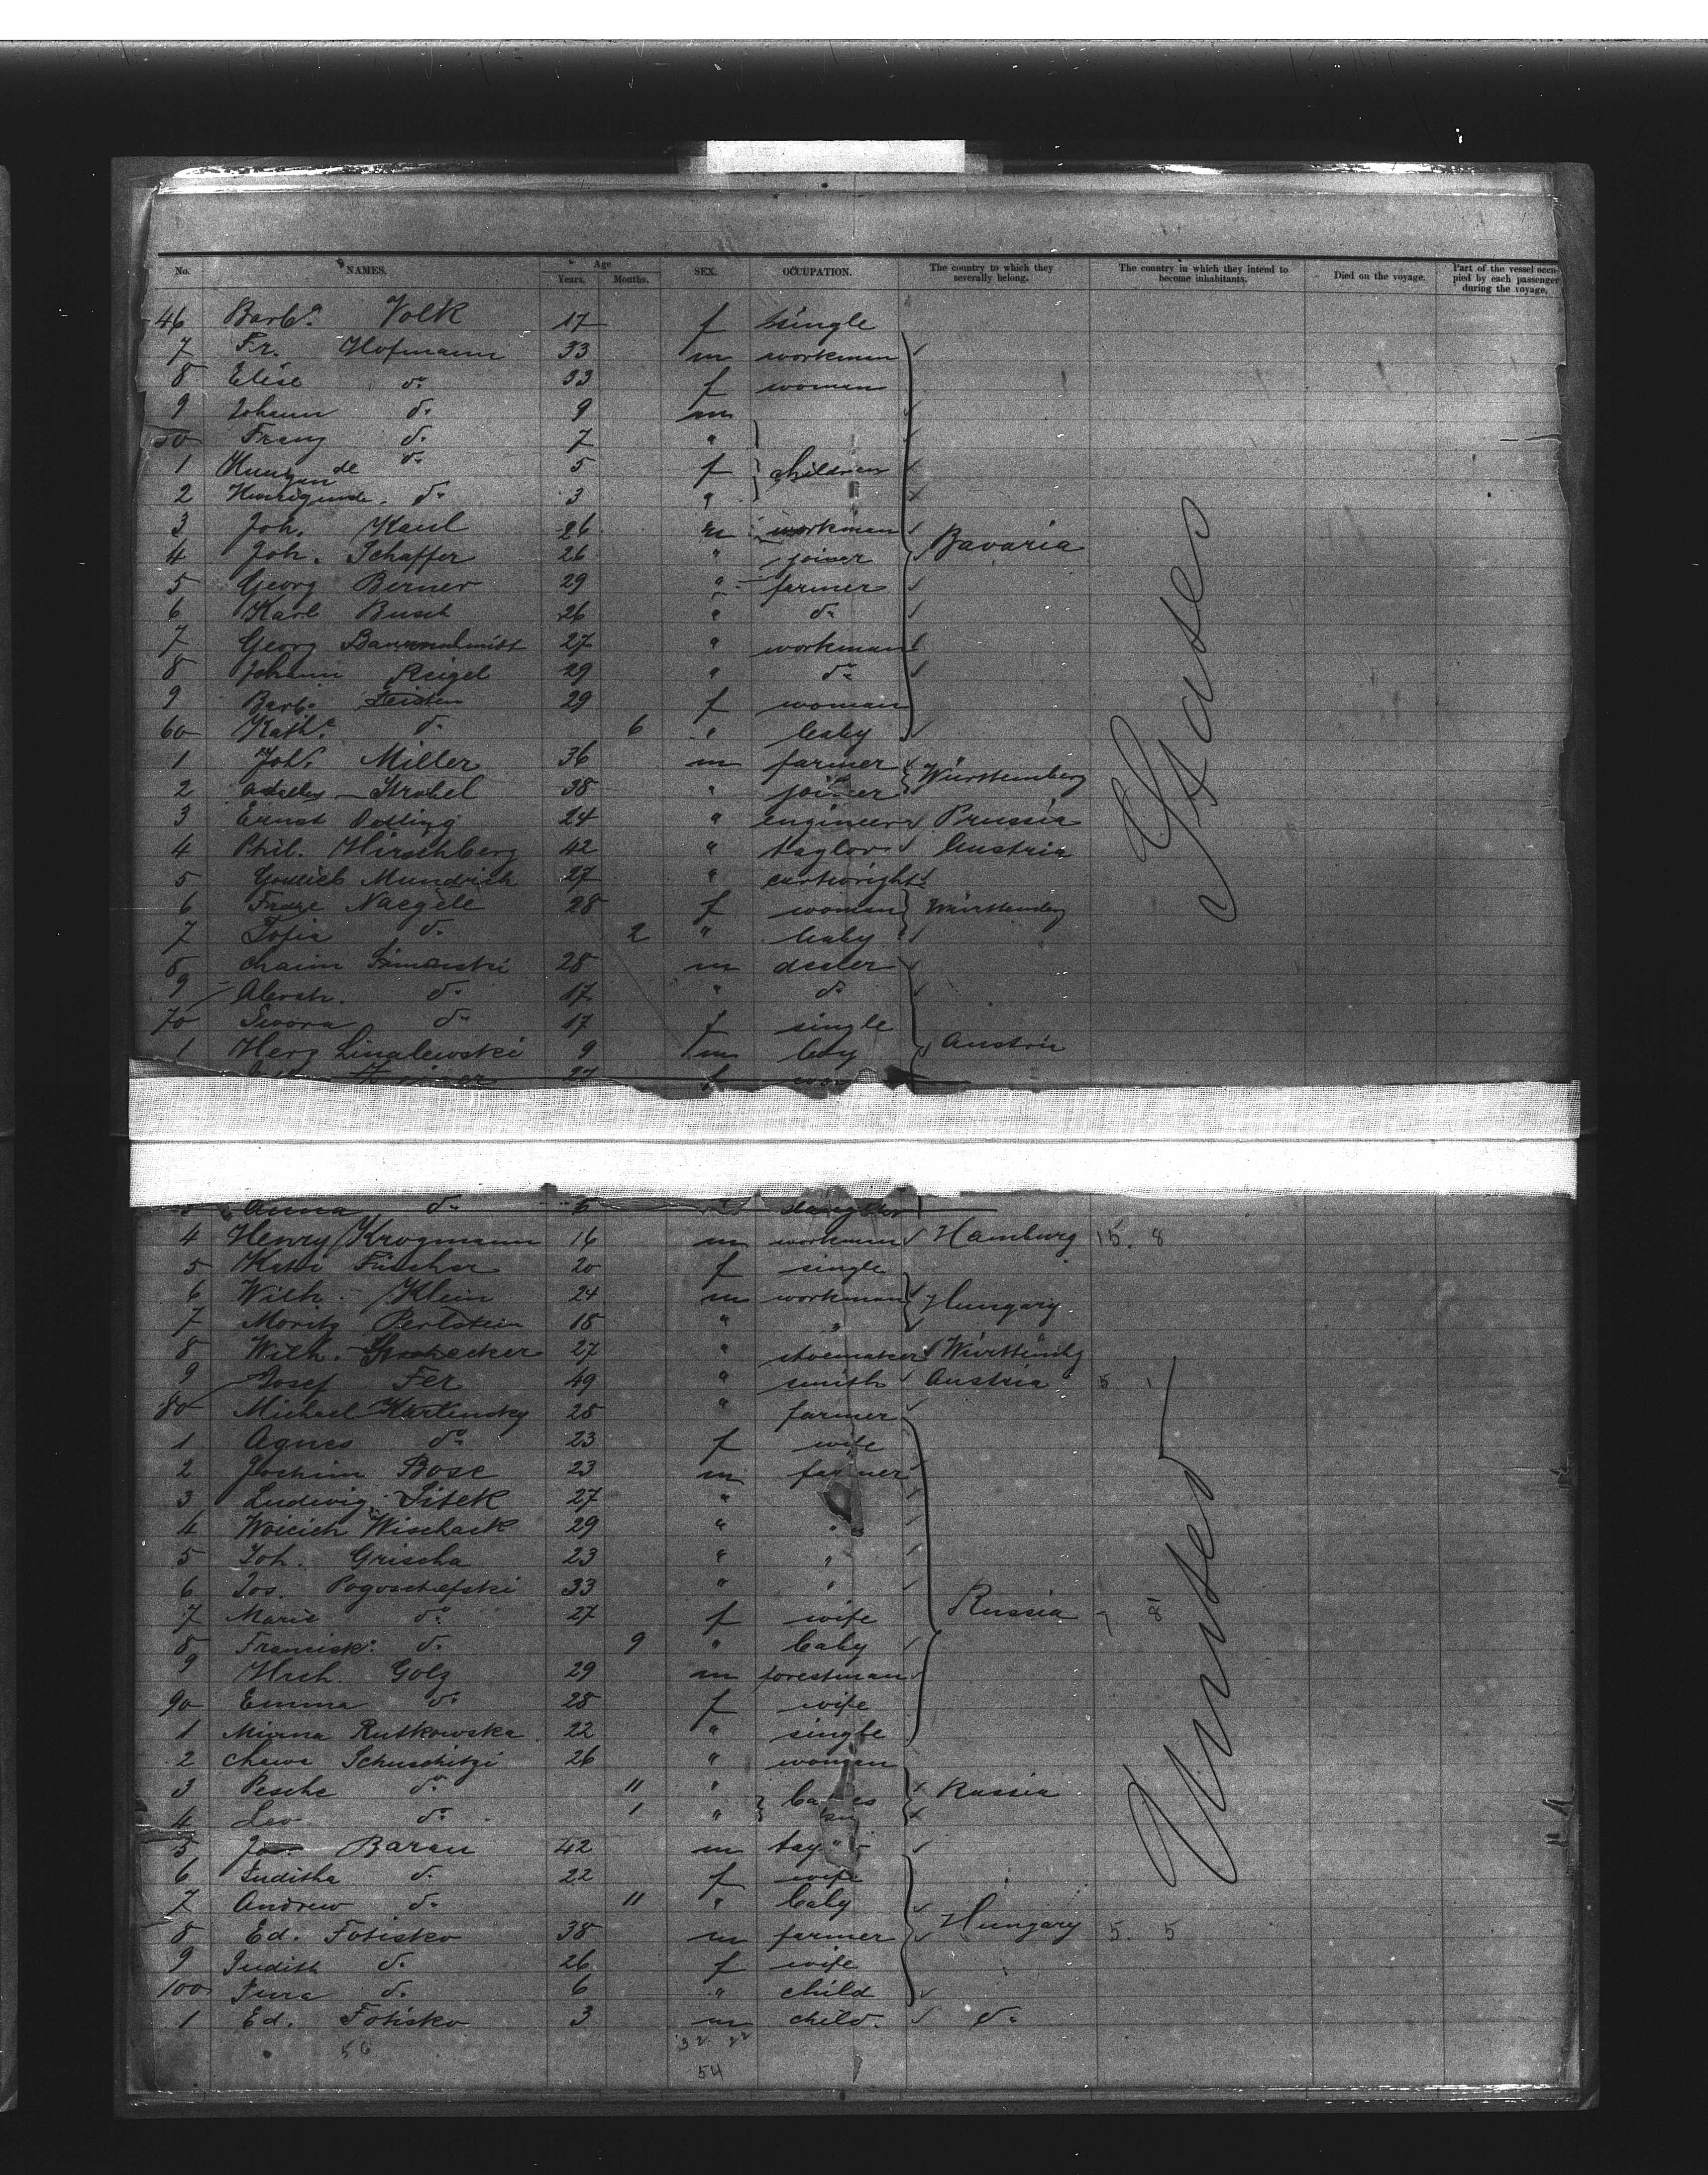 No. NAMES. Age Years. Months. SEX. OCCUPATION. The country to which they severally belong. The country in which they intend to become inhabitants. Died on the voyage. Part of the vessel occupied by each passenger during the voyage.
46 Barba. Volk 17 f single
7 Fr. Hofmann 33 m workman
8 Elise do 33 f woman
9 Johann do 9 m
50 Franz do 7 "
1 do 5 f children
2 do 3 "
3 Joh. Kaul 26 m workman
4 Joh. Schaffer 26 " joiner Bavaria
5 Georg Berner 29 " farmer
6 Karl Busch 26 " do
7 Georg 27 " workman
8 Johann Reigel 29 " do
9 Barb. 29 f woman
60 Kath. do 6 " baby
1 Joh. Miller 36 m farmer
2 Strobel 38 " joiner Württemberg
3 Ernst 24 " engineer Prussia
4 Phil. Hirschberg 42 " taylor Austria
5 Gottlieb Mundrich 27 "
6 Naegele 28 f woman Württemberg
7 Sofia do 2 " baby
8 Chaim 28 m dealer
9 Abersh. do 17 " do
70 do 17 f single
1 Herz Linalewski 9 m boy Austria
27 f
Anna do daughter
4 Henry Krogmann 16 m workman Hamburg 15. 8
5 Fischer 20 f single
6 Wilh. Klein 24 m workman Hungary
7 Moritz Perlstein 18 " "
8 Wilh. 27 " shoemaker Württembg
9 Josef Fer 49 " smith Austria 5 1
80 Michael Karlinsky 28 " farmer
1 Agnes do 23 f wife
2 Jochim Bose 23 m farmer
3 Ludwig Sitek 27 "
4 Woicich Wischack 29 " "
5 Joh. Grischa 23 " "
6 Jos. Pogoschefski 33 " "
7 Marie do 27 f wife Russia 7 8
8 Francisk. do 9 " baby
9 Hrch. Golz 29 m forestman
90 Emma do 28 f wife
1 Minna Rutkowska 22 " single
2 Chawe Schuschitzi 26 " woman
3 Pesche do 11 " Russia
4 Leo do 1 "
5 Baran 42 m
6 Juditha do 22 f wife
7 Andrew do 11 " baby
8 Ed. Fotisko 38 m farmer Hungary 5. 5
9 Judith do 26 f wife
100 do 6 " child
1 Ed. Fotisko 3 m child. do
56 32 22
54
United States